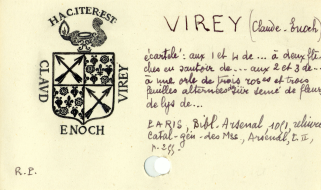 HAC ITER EST
CLAVD
VIREY
ENOCH
VIREY (Claude-Enoch)
écartelé: aux 1 et 4 de ... à deux flè-
ches en sautoir de ... aux 2 et 3 de ...
à une orle de trois roses et trois
feuilles alternées sur semé de fleurs
de lys de ...
PARIS, Bibl. Arsenal, reliure
Catal. gén. des Mss, Arsenal, t. II,
p. 255
R.P.